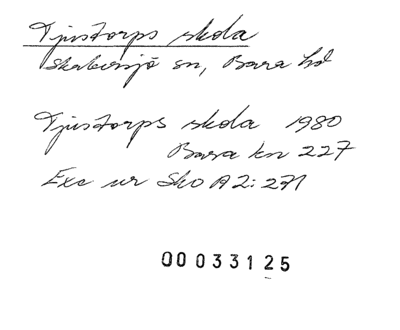 Tjustorps skola
Skabersjö sn, Bara hd
Tjustorps skola 1980
Bara kn 227
Exc ur Sko A2:271
00033125